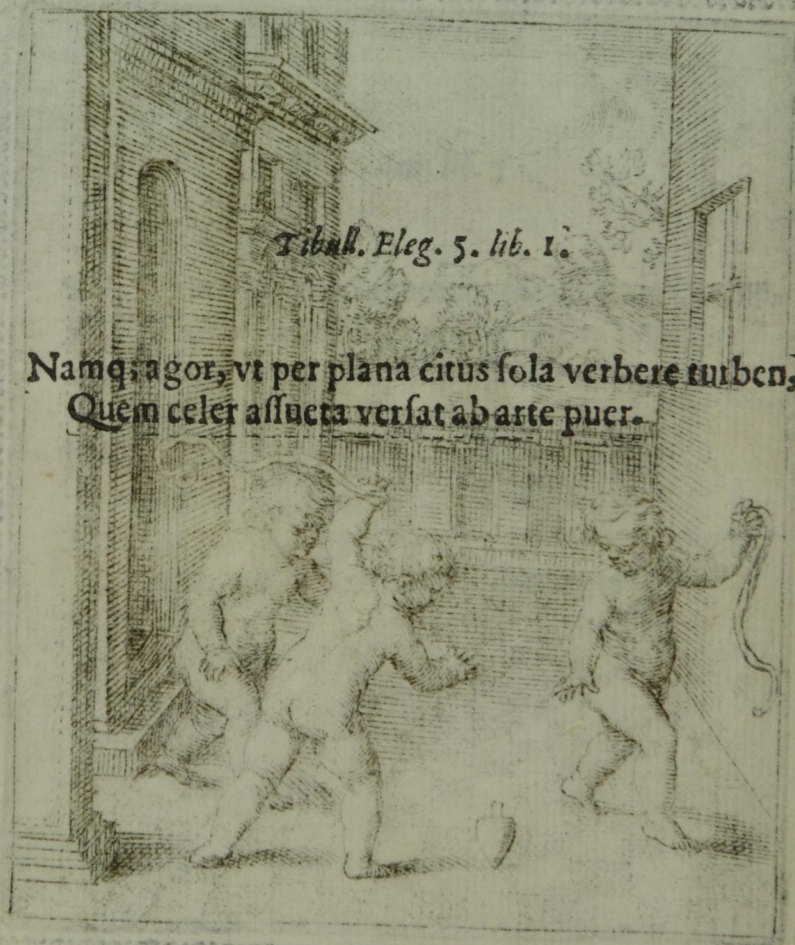 Tibull. Eleg. 5. lib. 1.
Namq; agor, vt per plana citus ſola verbere turben,
Quem celer aſſueta verſat ab arte puer.